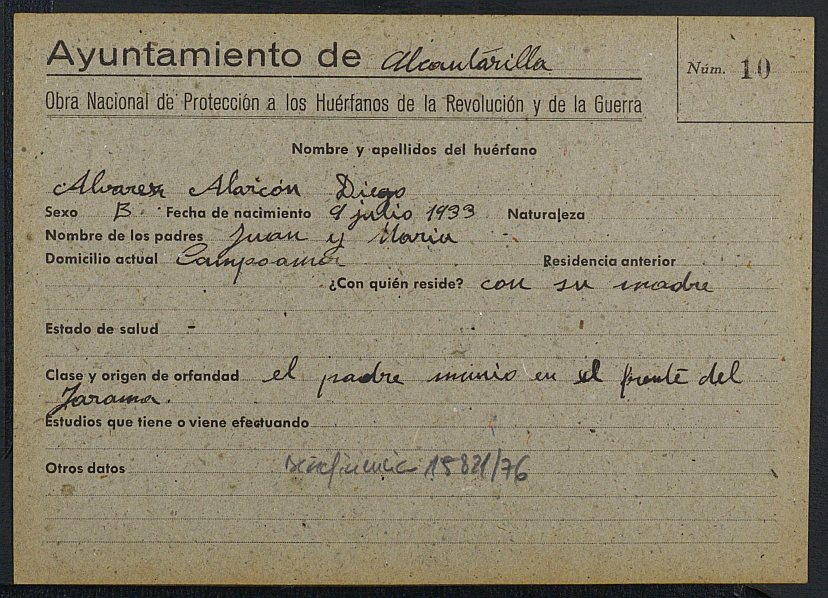 Ayuntamiento de Alcantarilla
Núm. 10
Obra Nacional de Protección a los Huérfanos de la Revolución y de la Guerra
Nombre y apellidos del huérfano
Alvarez Alarcón Diego
Sexo Fecha de nacimiento 9 julio 1933 Naturaleza
Nombre de los padres Juan y Maria
Domicilio actual Campoamor Residencia anterior
¿Con quién reside? con su madre
Estado de salud -
Clase y origen de orfandad el padre murio en el frente del
Jarama.
Estudios que tiene o viene efectuando
Otros datos 15821/76